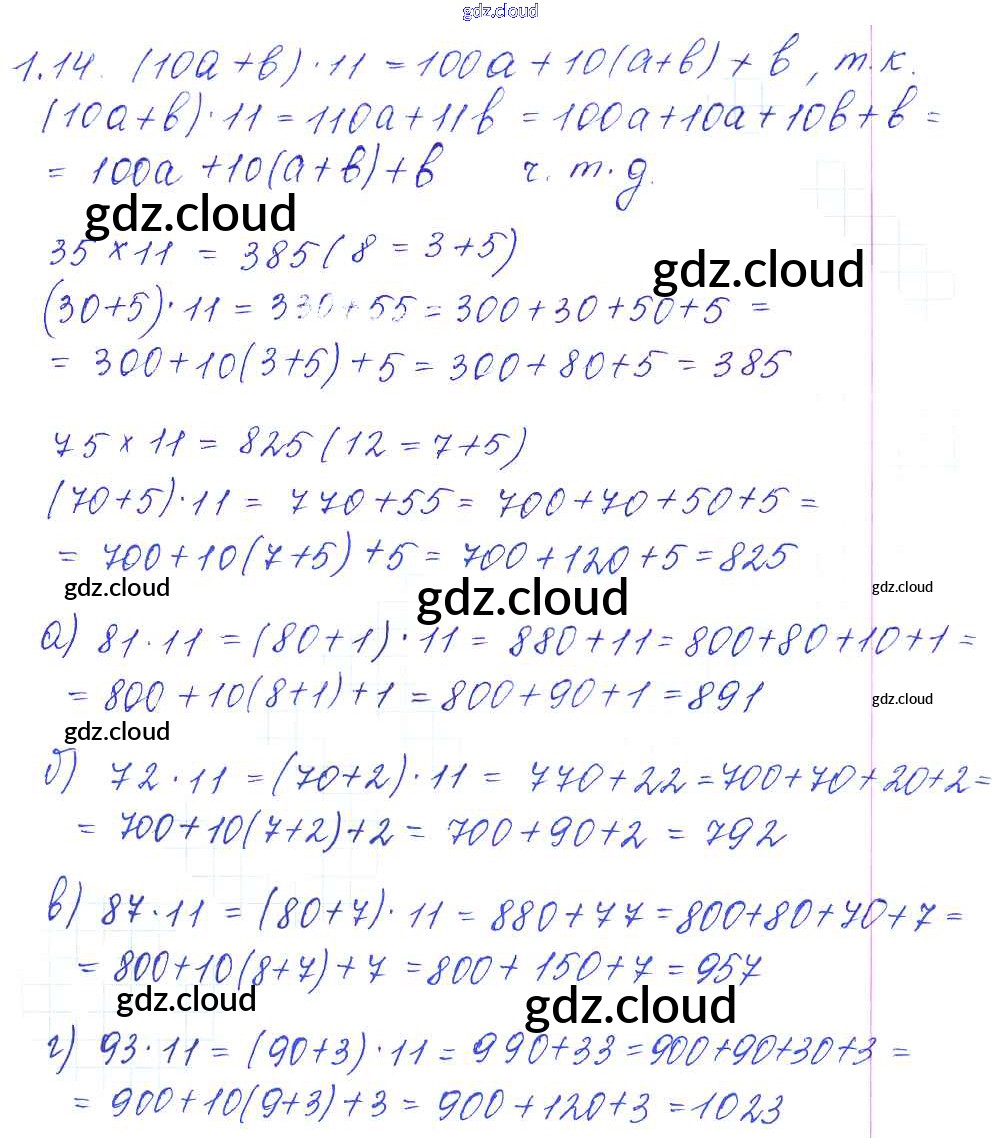 gdz.cloud
1.14. (10a+b)·11 = 100a+10(a+b)+b, т.к.
(10a+b)·11 = 110a+11b = 100a+10a+10b+b =
= 100a+10(a+b)+b ч.т.д.
gdz.cloud
35 × 11 = 385 (8 = 3+5)
gdz.cloud
(30+5)·11 = 330+55 = 300+30+50+5 =
= 300+10(3+5)+5 = 300+80+5 = 385
75 × 11 = 825 (12 = 7+5)
(70+5)·11 = 770+55 = 700+70+50+5 =
= 700+10(7+5)+5 = 700+120+5 = 825
gdz.cloud gdz.cloud gdz.cloud
а) 81·11 = (80+1)·11 = 880+11 = 800+80+10+1 =
= 800+10(8+1)+1 = 800+90+1 = 891
gdz.cloud
gdz.cloud
б) 72·11 = (70+2)·11 = 770+22 = 700+70+20+2 =
= 700+10(7+2)+2 = 700+90+2 = 792
в) 87·11 = (80+7)·11 = 880+77 = 800+80+70+7 =
= 800+10(8+7)+7 = 800+150+7 = 957
gdz.cloud gdz.cloud
г) 93·11 = (90+3)·11 = 990+33 = 900+90+30+3 =
= 900+10(9+3)+3 = 900+120+3 = 1023